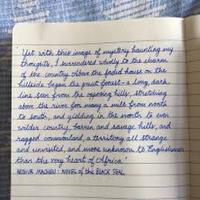 'Yet with this image of mystery haunting my
thoughts, I surrendered wholly to the charm
of the country. Above the faded house on the
hillside began the great forest – a long, dark
line seen from the opposing hills, stretching
above the river for many a mile from north
to south, and yielding in the north to even
wilder country, barren and savage hills, and
ragged commonland, a territory all strange
and unvisited, and more unknown to Englishmen
than the very heart of Africa.'
ARTHUR MACHEN: NOVEL OF THE BLACK SEAL